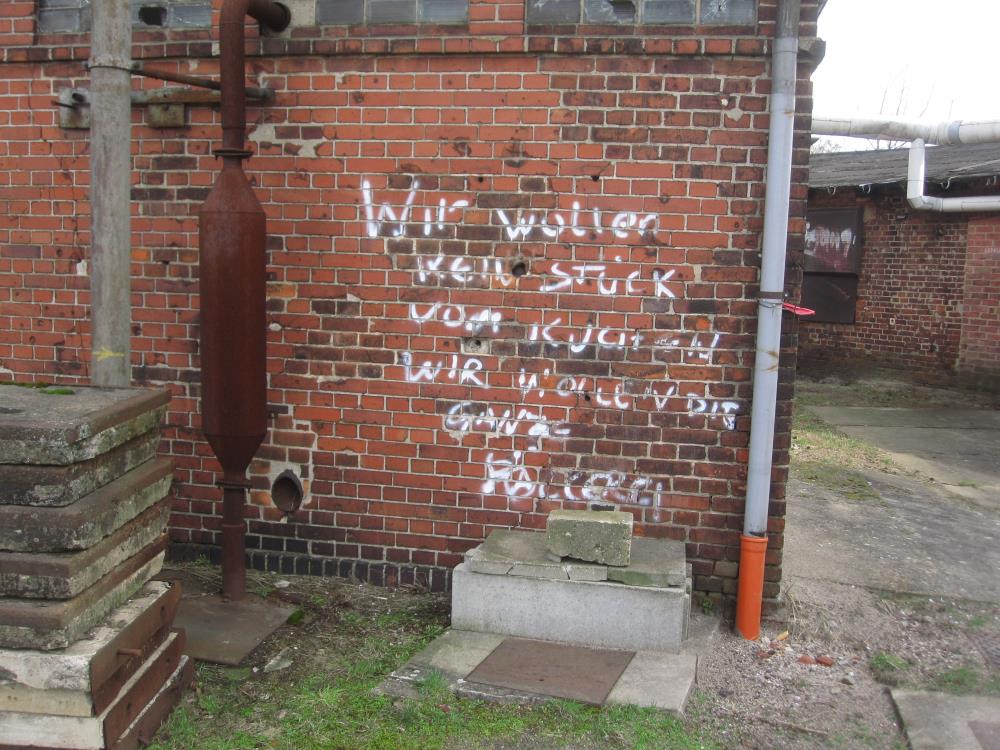 Wir wollen
KEIN STÜCK
VOM KUCHEN
WIR WOLLEN DIE
GANZE
BÄCKEREI